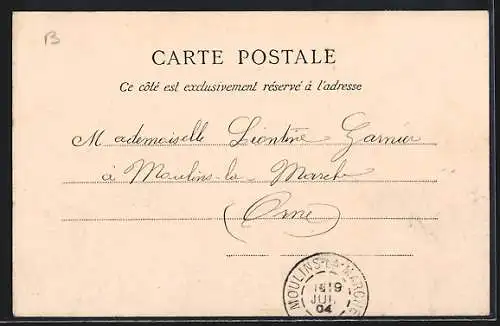 B
CARTE POSTALE
Ce côté est exclusivement réservé à l'adresse
Mademoiselle Léontine Garnier
à Moulins-la-Marche
(Orne)
MOULINS-LA-MARCHE
JUIL
04